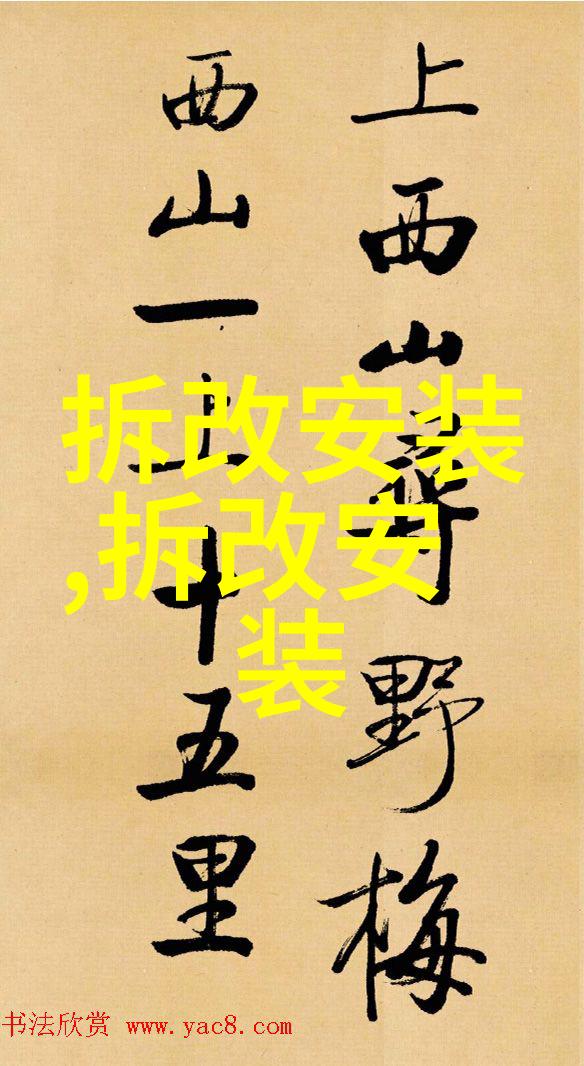 上西山尋野梅
西山一上十五里
拆改安装
,拆改安
装
书法欣赏 www.yac8.com